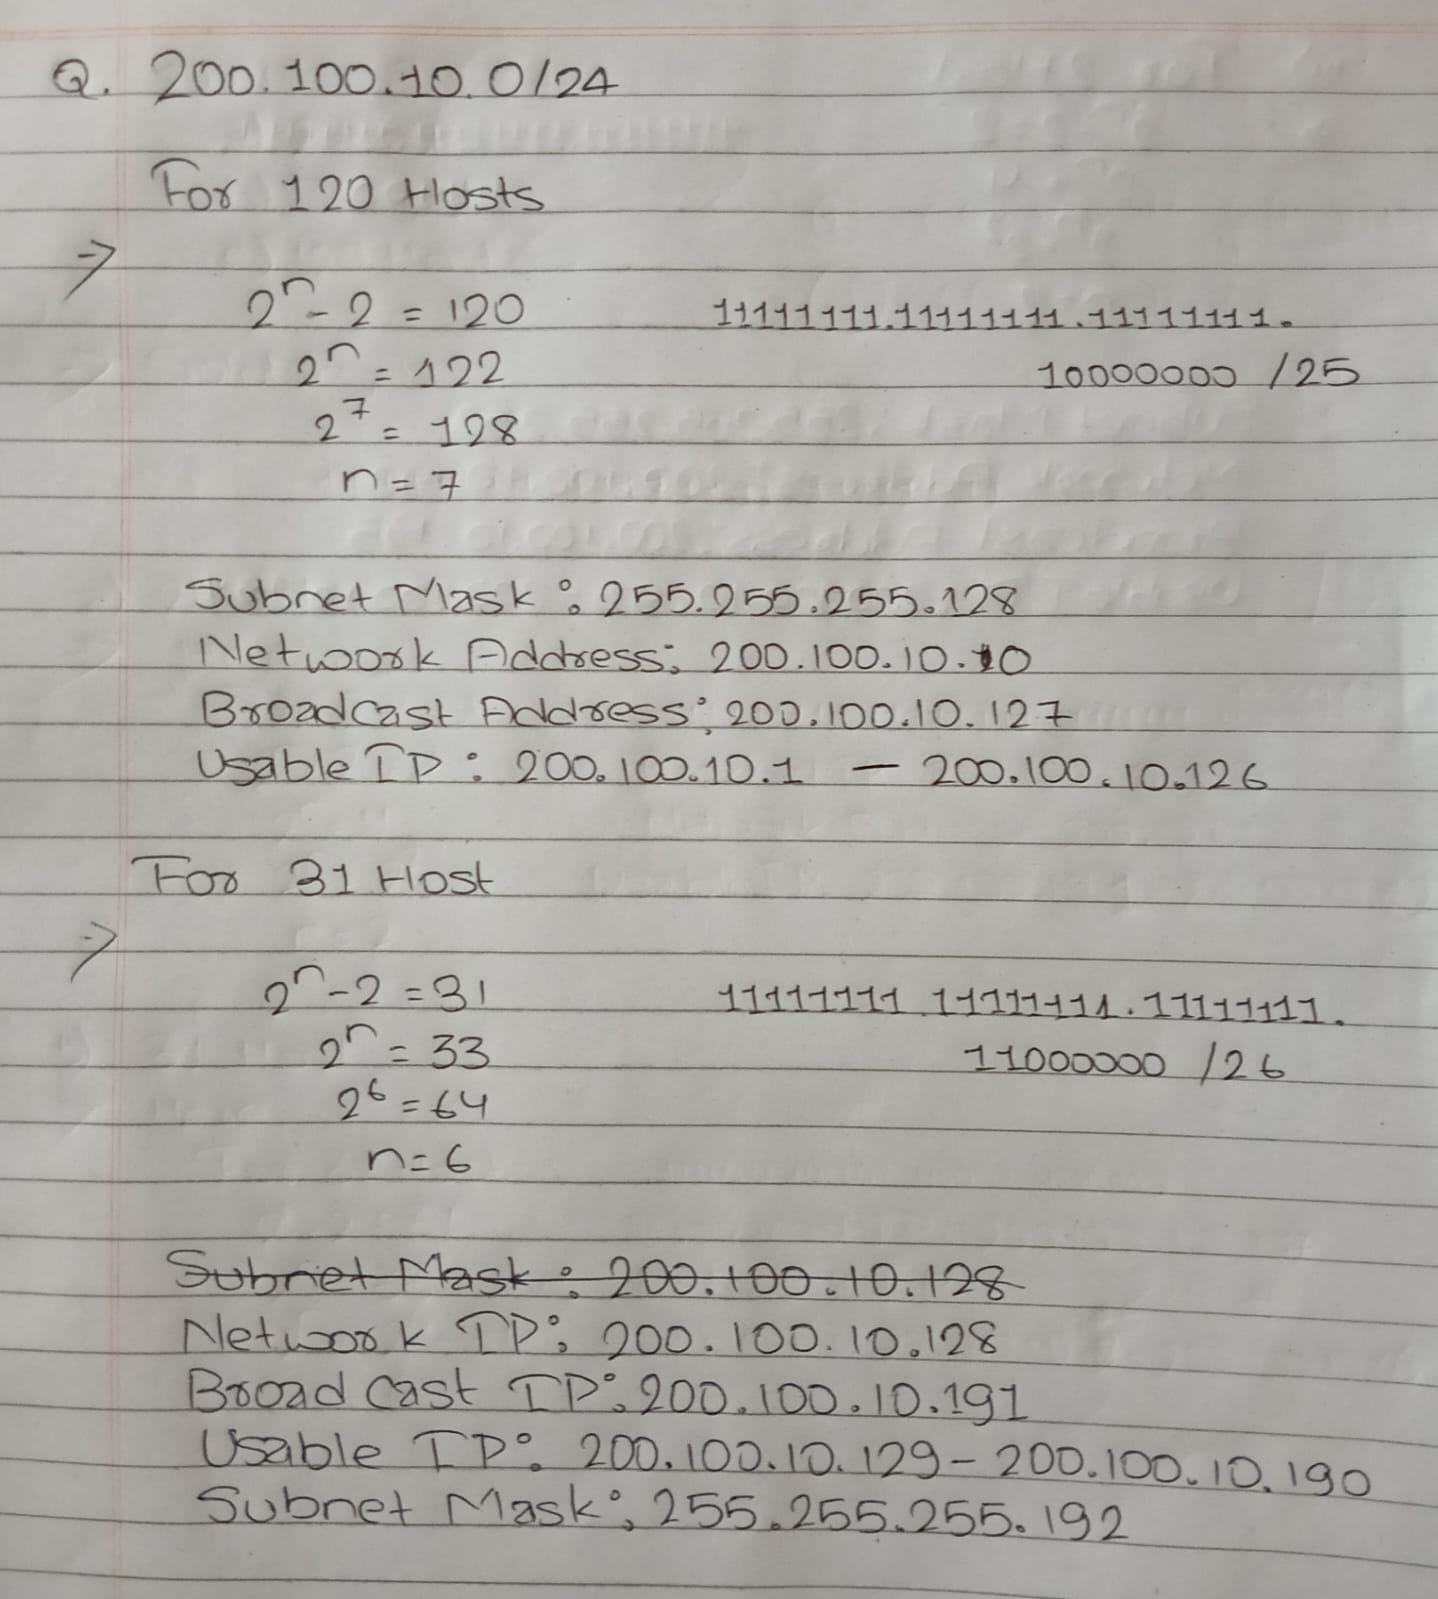 Q. 200.100.10.0/24
For 120 Hosts
⇒
2ⁿ - 2 = 120 11111111.11111111.11111111.
2ⁿ = 122 10000000 /25
2⁷ = 128
n = 7
Subnet Mask : 255.255.255.128
Network Address: 200.100.10.0
Broadcast Address: 200.100.10.127
Usable IP : 200.100.10.1 — 200.100.10.126
For 31 Host
⇒
2ⁿ - 2 = 31 11111111 11111111.11111111.
2ⁿ = 33 11000000 /26
2⁶ = 64
n = 6
Subnet Mask : 200.100.10.128
Network IP: 200.100.10.128
Broad Cast IP: 200.100.10.191
Usable IP: 200.100.10.129 - 200.100.10.190
Subnet Mask: 255.255.255.192